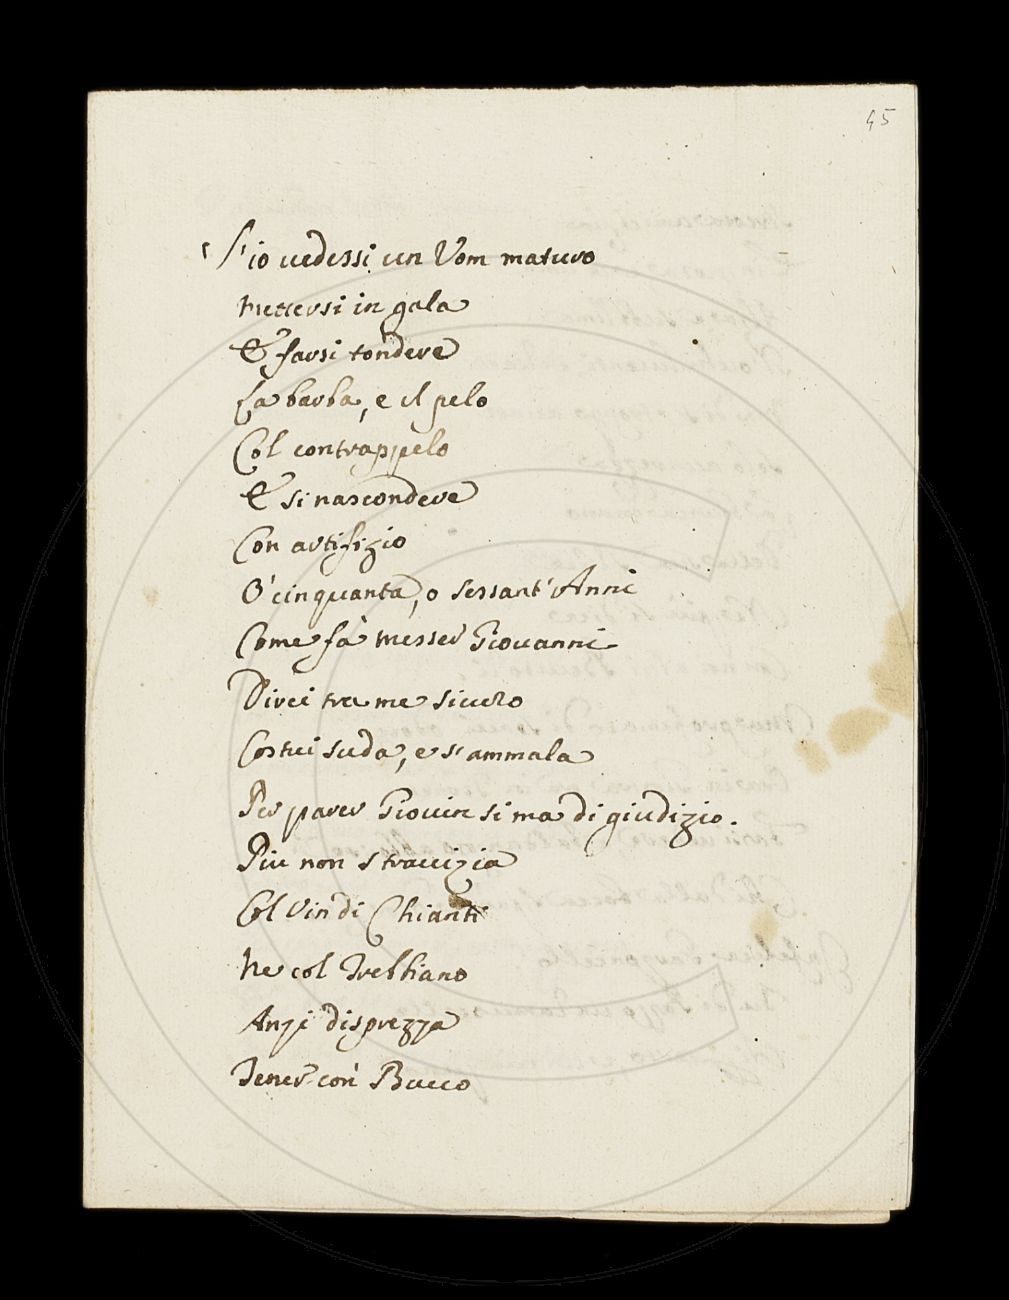 45
S'io uedessi un Uom maturo
Mettersi in gala
E farsi tondere
La barba, e il pelo
Col contrappelo
E si nascondere
Con artifizio
O' cinquanta, o sessant'Anni
Come fà messer Giouanni
Direi tra me sicuro
Costui suda, e s'ammala
Per parer Giouin si ma di giudizio.
Piu non strauizia
Col Vin di Chianti
Ne col Trebbiano
Anzi disprezza
Tener con Bacco